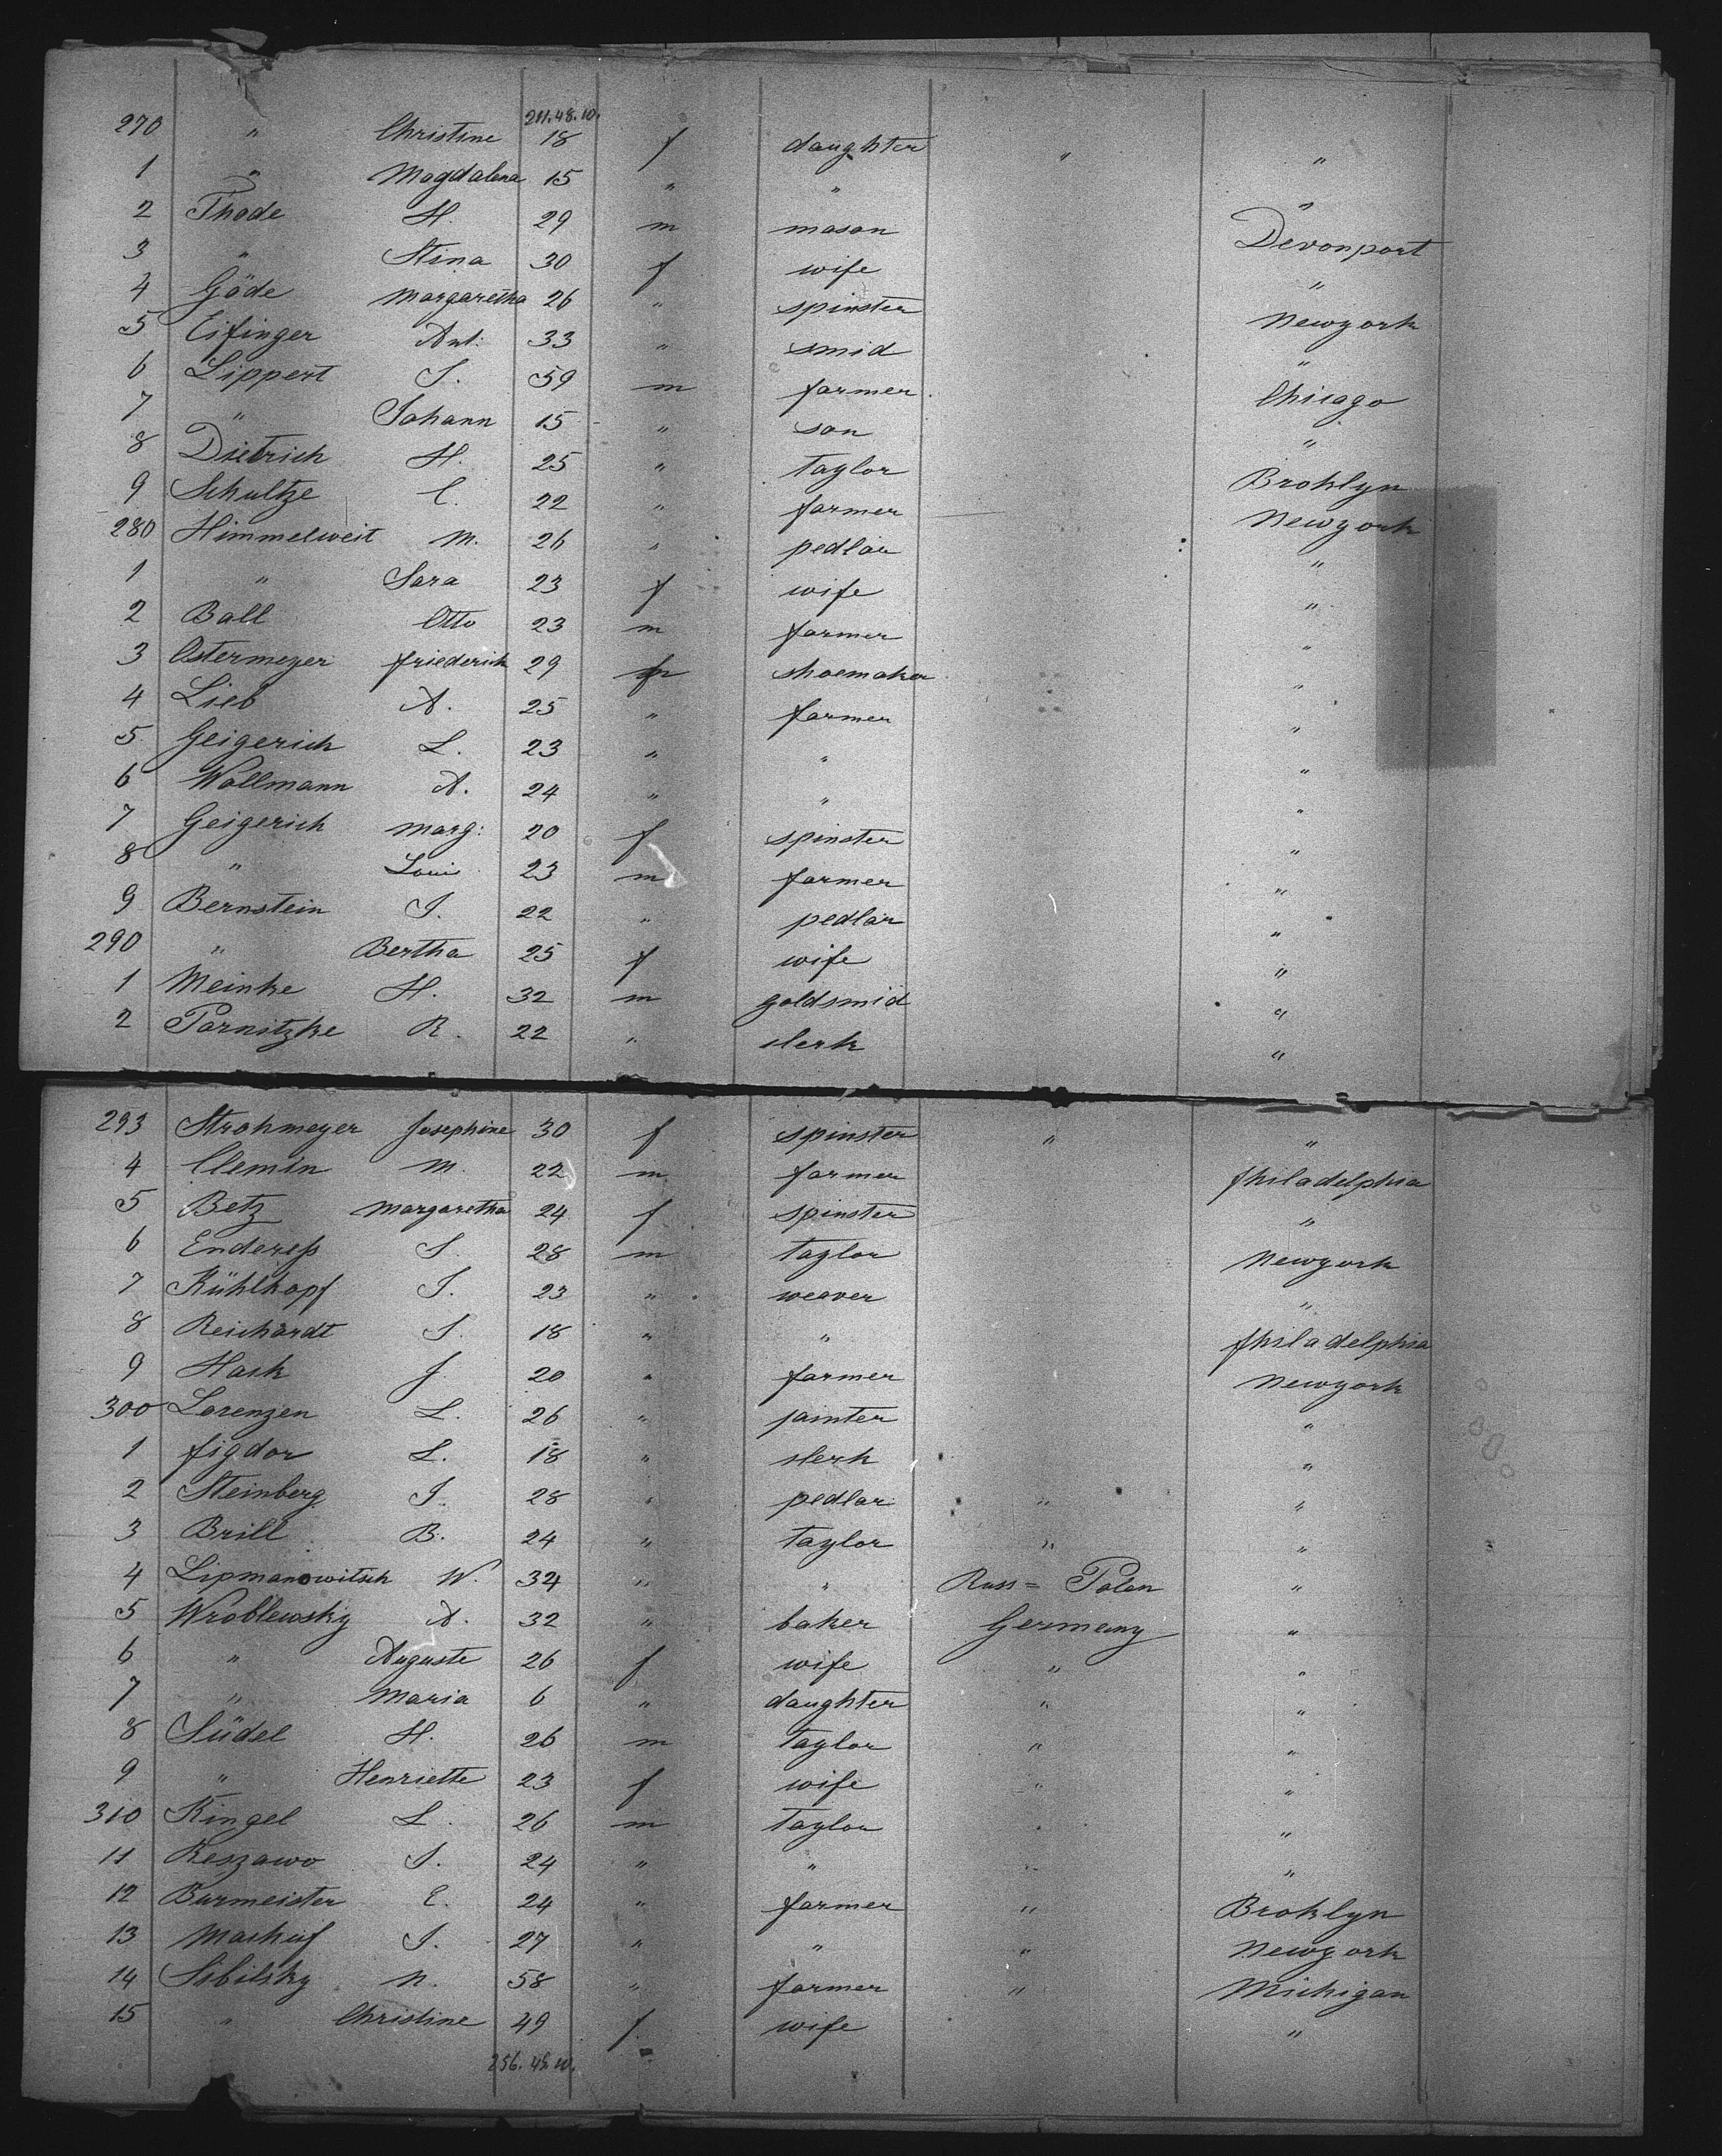 211.48.10.
270 " Christine 18 f daughter " "
1 " Magdalena 15 " " "
2 Thode H. 29 m mason Devonport
3 " Stina 30 f wife "
4 Göde Margaretha 26 " spinster Newyork
5 Eifinger Ant: 33 " smid "
6 Lippert J. 59 m farmer Chicago
7 " Johann 15 " son "
8 Dietrich H. 25 " taylor Broklyn
9 Schultze C. 22 " farmer Newyork
280 Himmelweit M. 26 " pedlar "
1 " Sara 23 f wife "
2 Ball Otto 23 m farmer "
3 Ostermeyer Friederich 29 shoemaker "
4 Lieb A. 25 " farmer "
5 Geigerich L. 23 " " "
6 Wollmann A. 24 " " "
7 Geigerich Marg: 20 f spinster "
8 " Louis 23 m farmer "
9 Bernstein J. 22 " pedlar "
290 " Bertha 25 f wife "
1 Meinke H. 32 m goldsmid "
2 Parnitzke R. 22 " clerk "
293 Strohmeyer Josephine 30 f spinster " "
4 Clemin M. 22 m farmer Philadelphia
5 Betz Margaretha 24 f spinster "
6 Endereß J. 28 m taylor Newyork
7 Kühlkopf J. 23 " weaver "
8 Reichardt J. 18 " " Philadelphia
9 Hack J. 20 " farmer Newyork
300 Lorenzen L. 26 " painter "
1 Figdor L. 18 " clerk "
2 Steinberg J. 28 " pedlar " "
3 Brill B. 24 " taylor " "
4 Lipmanowitsch W. 34 " " Russ= Polen "
5 Wroblewsky A. 32 " baker Germany "
6 " Auguste 26 f wife " "
7 " Maria 6 " daughter " "
8 Südel H. 26 m taylor " "
9 " Henriette 23 f wife " "
310 Kingel L. 26 m taylor " "
11 Reszawo J. 24 " " " "
12 Burmeister E. 24 " farmer " Broklyn
13 J. 27 " " " Newyork
14 Sibilsky N. 58 " farmer " Michigan
15 " Christine 49 f. wife "
256. 48. 10.